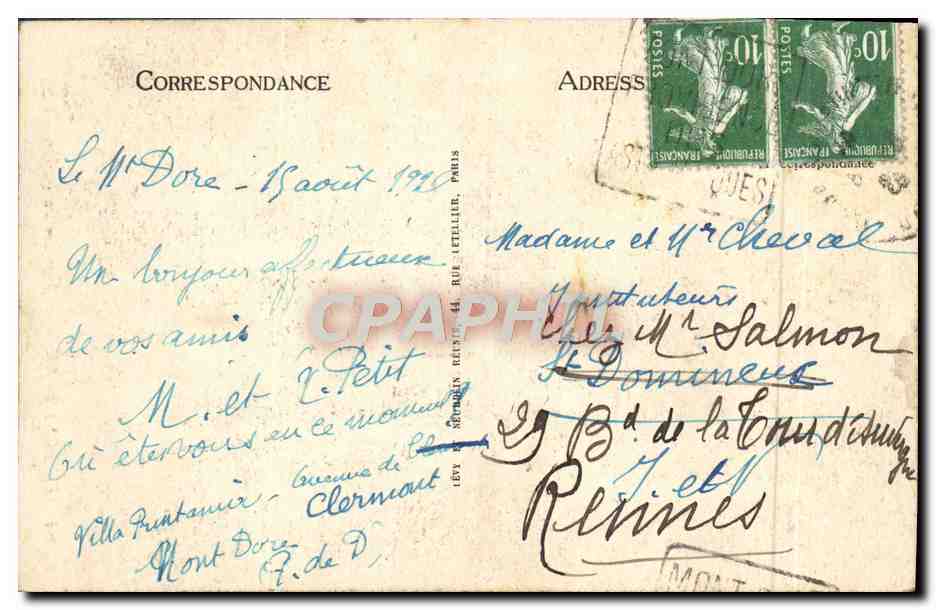 CORRESPONDANCE
Le Mt Dore - 15 août 192
Un bonjour affectueux
de vos amis
M. et Y. Petit
Où êtes vous en ce moment
Villa Printanier - avenue de
Clermont
Mont Dore
(P. de D)
LÉVY ET NEURDEIN RÉUNIS, 44, RUE LETELLIER, PARIS
ADRESS
10c POSTES RÉPUBLIQUE FRANÇAISE
10c POSTES RÉPUBLIQUE FRANÇAISE
OUEST
Madame et Mr Cheval
Instituteurs
chez Mr Salmon
St Domineuc
29 Bd de la Tour d'Auvergne
I et V
Rennes
MONT
CPAPHIL